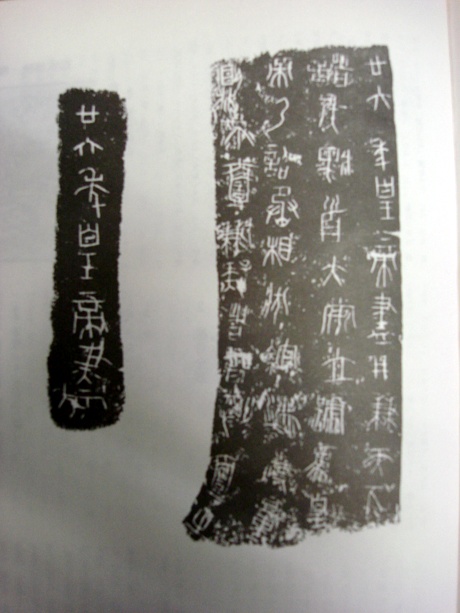 廿六年皇帝盡并兼天下
諸侯黔首大安立號為皇
帝乃詔丞相狀綰法度量
則不壹歉疑者皆明壹之
廿六年皇帝